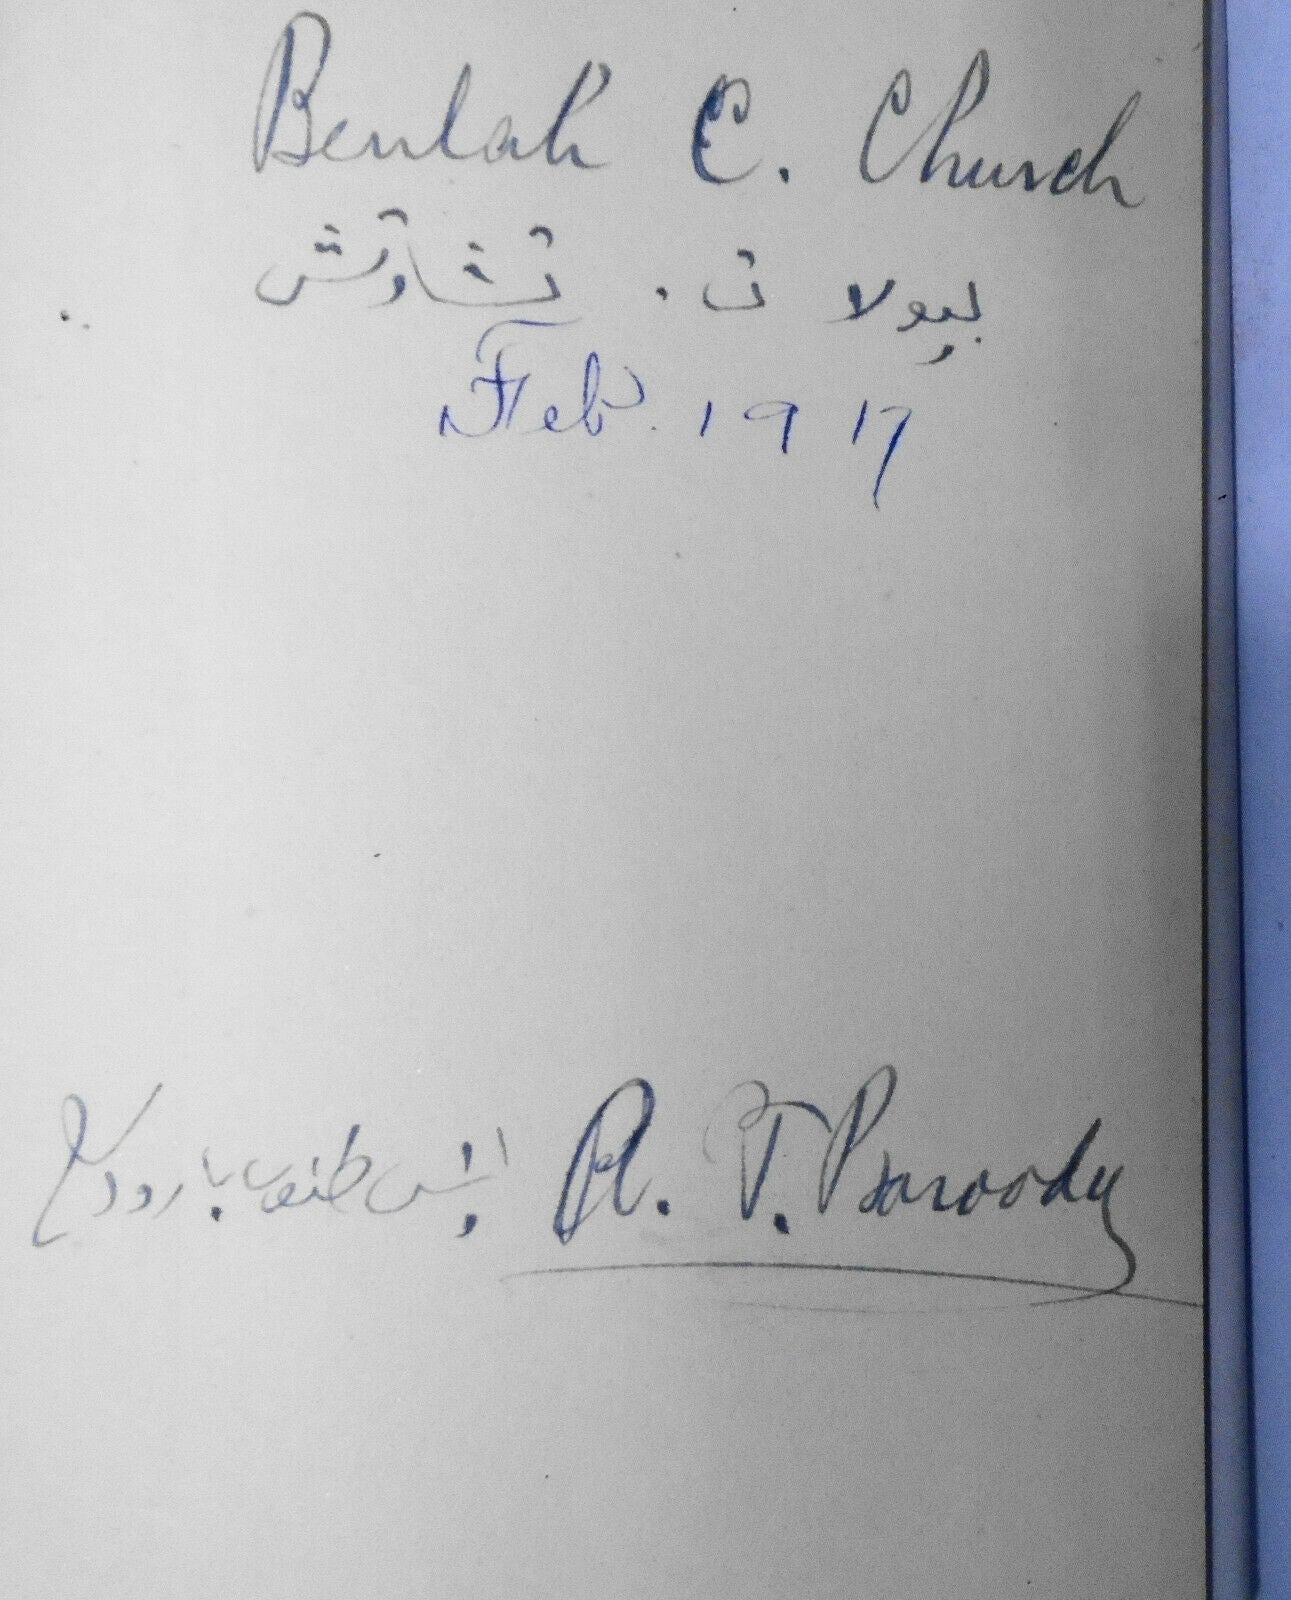 Beulah C. Church
بيولا ت. تشارتش
Feb. 1917
A. T. Baroody